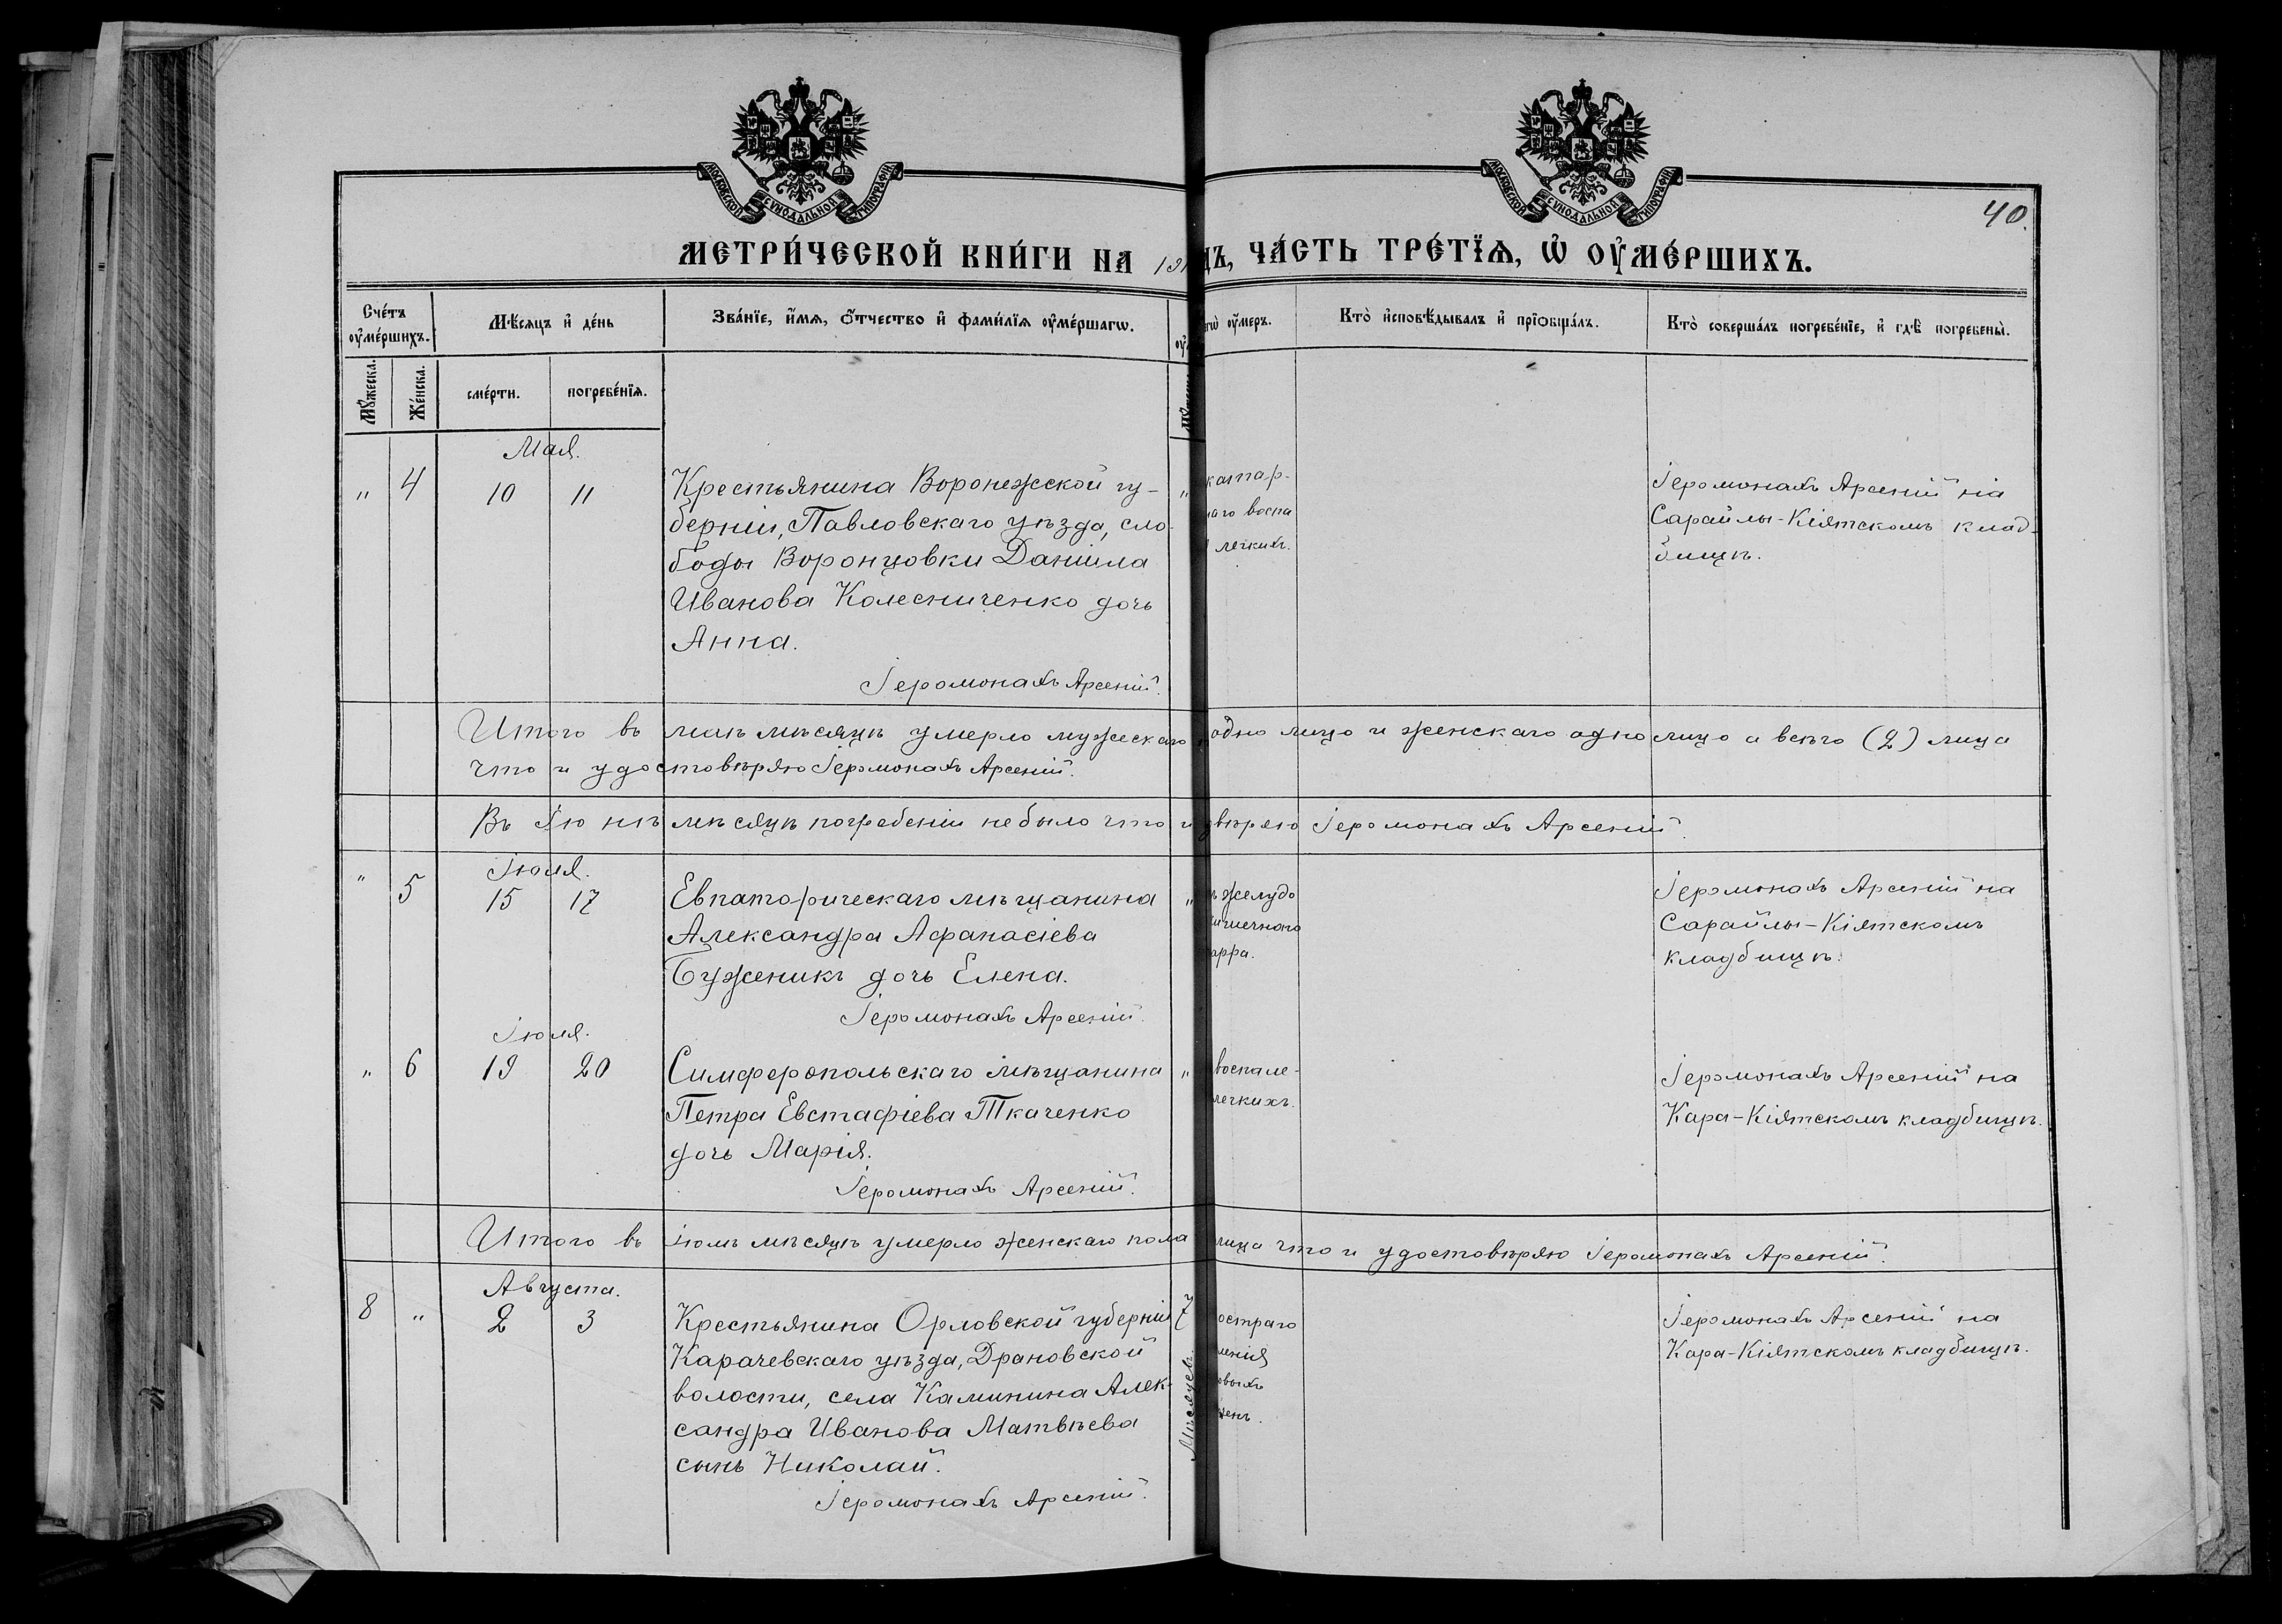 МОСКОВСКОЙ СѴНОДАЛЬНОЙ ТИПОГРАФІИ
МОСКОВСКОЙ СѴНОДАЛЬНОЙ ТИПОГРАФІИ
40.
МЕТРИ́ЧЕСКОЙ КНИ́ГИ НА 191
ДЪ, ЧА́СТЬ ТРЕ́ТЇѦ, Ѡ҆ ОУ҆МЕ́РШИХЪ.
Сче́тъ оу҆ме́ршихъ.
Мѣ́сяцъ и҆ де́нь
Зва́нїе, и҆́мя, ѻ҆́тчество и҆ фами́лїя оу҆ме́ршагѡ.
гѡ̀ оу҆́меръ.
Кто̀ и҆сповѣ́дывалъ и҆ прїѻбща́лъ.
Кто̀ соверша́лъ погребе́нїе, и҆ гдѣ̀ погребены̀.
Мꙋ́жеска.
Же́нска.
сме́рти.
погребе́нїя.
Мая.
" 4 10 11
Крестьянина Воронежской гу-
берніи, Павловскаго уѣзда, сло-
боды Воронцовки Даніила
Иванова Колесниченко дочь
Анна.
Іеромонахъ Арсеній.
"
катар-
наго воспа
легкихъ.
Іеромонахъ Арсеній на
Сарайлы-Кіятскомъ клад-
бищѣ.
Итого въ маѣ мѣсяцѣ умерло мужескаго одно лицо и женскаго одно лицо а всего (2) лица
что и удостовѣряю Іеромонахъ Арсеній.
Въ Іюнѣ мѣсяцѣ погребеній не было что и вѣряю Іеромонахъ Арсеній.
Іюля.
" 5 15 17
Евпаторическаго мѣщанина
Александра Афанасіева
Буженикъ дочь Елена.
Іеромонахъ Арсеній.
"
желудо
кишечнаго
арра.
Іеромонахъ Арсеній на
Сарайлы-Кіятскомъ
кладбищѣ.
Іюля.
" 6 19 20
Симферопольскаго мѣщанина
Петра Евстафіева Ткаченко
дочь Марія.
Іеромонахъ Арсеній.
"
воспале-
легкихъ.
Іеромонахъ Арсеній на
Кара-Кіятскомъ кладбищѣ.
Итого въ іюлѣ мѣсяцѣ умерло женскаго пола лица что и удостовѣряю Іеромонахъ Арсеній.
Августа.
8 " 2 3
Крестьянина Орловской губерніи
Карачевскаго уѣзда, Драновской
волости, села Каминина Алек-
сандра Иванова Матвѣева
сынъ Николай.
Іеромонахъ Арсеній.
7
Мѣсяцевъ.
остраго
ленія
овыхъ
Іеромонахъ Арсеній на
Кара-Кіятскомъ кладбищѣ.